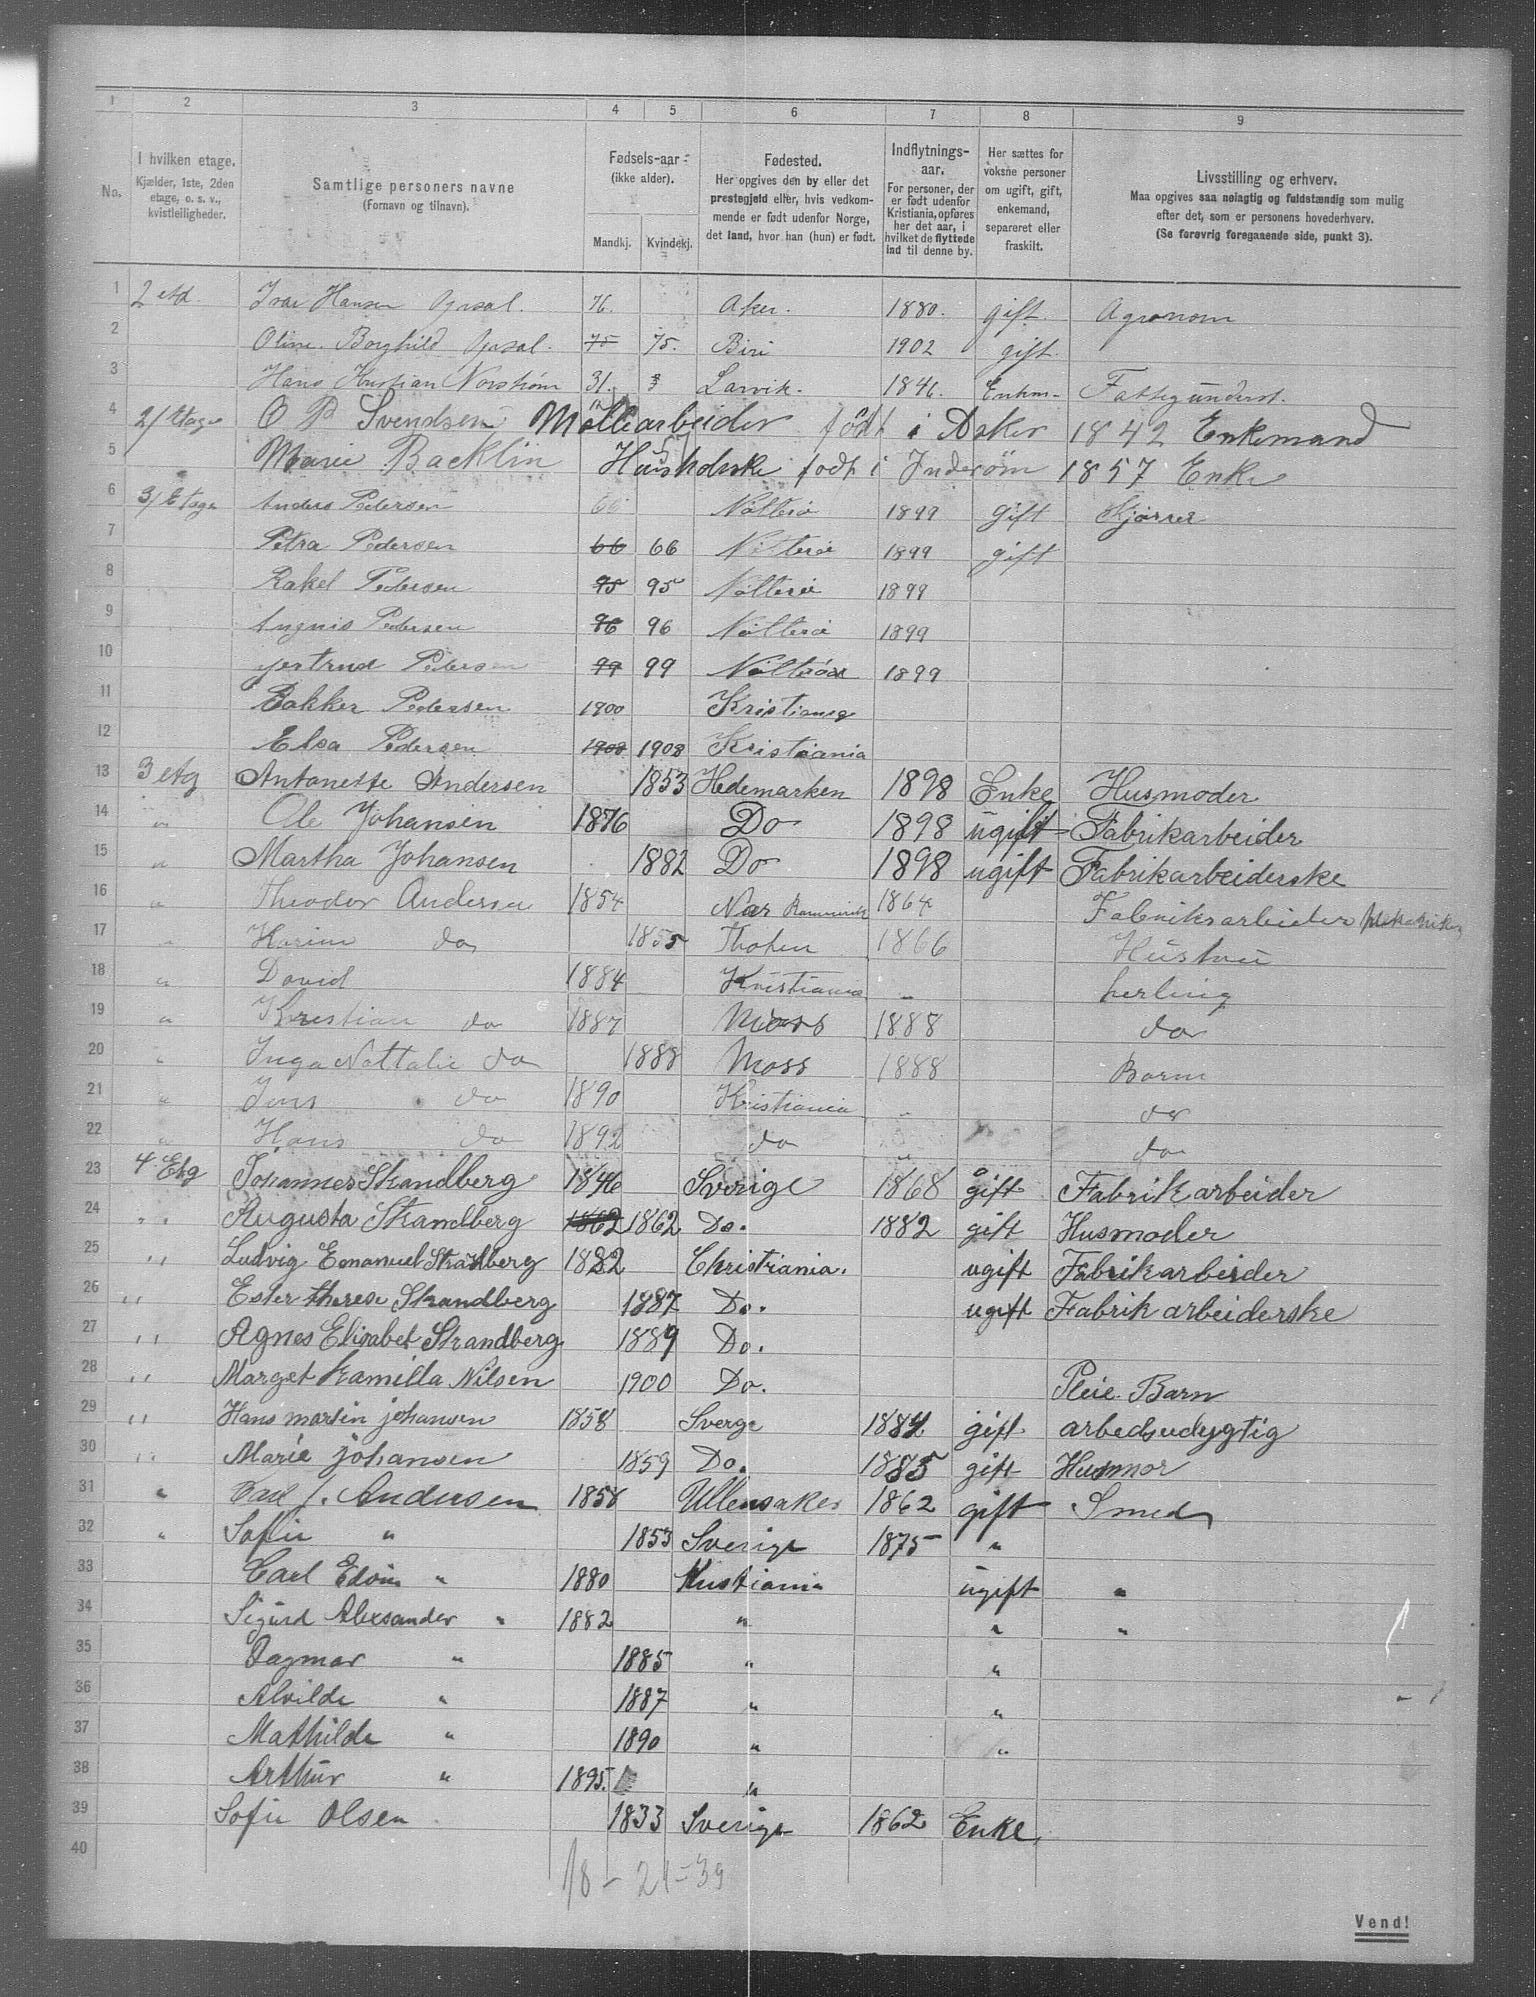 1 2 3 4 5 6 7 8 9
No.
I hvilken etage.
Kjælder, 1ste, 2den
etage, o. s. v.,
kvistleiligheder.
Samtlige personers navne
(Fornavn og tilnavn).
Fødsels-aar
(ikke alder).
Mandkj. Kvindekj.
Fødested.
Her opgives den by eller det
prestegjeld eller, hvis vedkom-
mende er født udenfor Norge,
det land, hvor han (hun) er født.
Indflytnings-
aar.
For personer, der
er født udenfor
Kristiania, opføres
her det aar, i
hvilket de flyttede
ind til denne by.
Her sættes for
voksne personer
om ugift, gift,
enkemand,
separeret eller
fraskilt.
Livsstilling og erhverv.
Maa opgives saa nøiagtig og fuldstændig som mulig
efter det, som er personens hovederhverv.
(Se forøvrig foregaaende side, punkt 3).
1 2 etd. Ivar Hansen 76. Aker. 1880. gift. Agronom
2 Oline Borghild 75 75. Biri 1902 gift.
3 Hans Kristian Norstrøm 31. Larvik. 1846. Enkm.
4 2/ Etage O P Svendsen Møllearbeider født i Asker 1842 Enkemand
5 Marie Backlin 57 født i Inderøm 1857 Enke
6 3/ Etage Anders Pedersen 66 Nøtterø 1899 gift
7 Petra Pedersen 66 66 Nøtterø 1899 gift
8 Rakel Pedersen 95 95 Nøtterø 1899
9 Angnis Pedersen 96 96 Nøtterø 1899
10 Jertrud Pedersen 99 99 Nøtterø 1899
11 Pedersen 1900 Kristiania
12 Elsa Pedersen 1908 1908 Kristiania
13 3 etg Antonette Andersen 1853 Hedemarken 1898 Enke Husmoder
14 " Ole Johansen 1876 Do 1898 ugift Fabrikarbeider
15 " Martha Johansen 1882 Do 1898 ugift Fabrikarbeiderske
16 " Theodor Andersen 1854 Nær 1864 Fabriksarbeider
17 " Karine do 1855 Thoten 1866 Hustru
18 " David 1884 Kristiania " herling
19 " Kristian do 1887 Moss 1888 do
20 " Inga Nattalie do 1888 Moss 1888 Barn
21 " Jens do 1890 Kristiania " do
22 " Hans do 1892 do " do
23 4 Etg Johannes Strandberg 1846 Sverige 1868 gift Fabrikarbeider
24 " Augusta Strandberg 1862 1862 Do. 1882 gift Husmoder
25 " Ludvig Emanuel Strandberg 1882 Christiania. ugift Fabrikarbeider
26 " Ester therese Strandberg 1887 Do. ugift Fabrik arbeiderske
27 " Agnes Elisabet Strandberg 1889 Do.
28 " Marget Kamilla Nilsen 1900 Do. Pleie Barn
29 " Hans martin johansen 1858 Sverge 1884 gift arbedsudygtig
30 " Marie johansen 1859 Do. 1885 gift Husmor
31 " Carl J. Andersen 1858 Ullensaker 1862 gift Smed
32 " Sofie " 1853 Sverige 1875 "
33 Carl Edvin " 1880 Kristiania ugift "
34 Sigurd Alexsander " 1882 " " "
35 Dagmar " 1885 " "
36 Alvilde " 1887 " "
37 Mathilde " 1890 " "
38 Arthur " 1895. "
39 Sofie Olsen 1833 Sverige 1862 Enke
40
18 - 21 = 39
Vend!